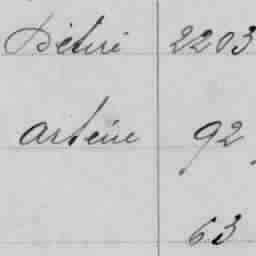 Détiré 2203
Artérie 92
63